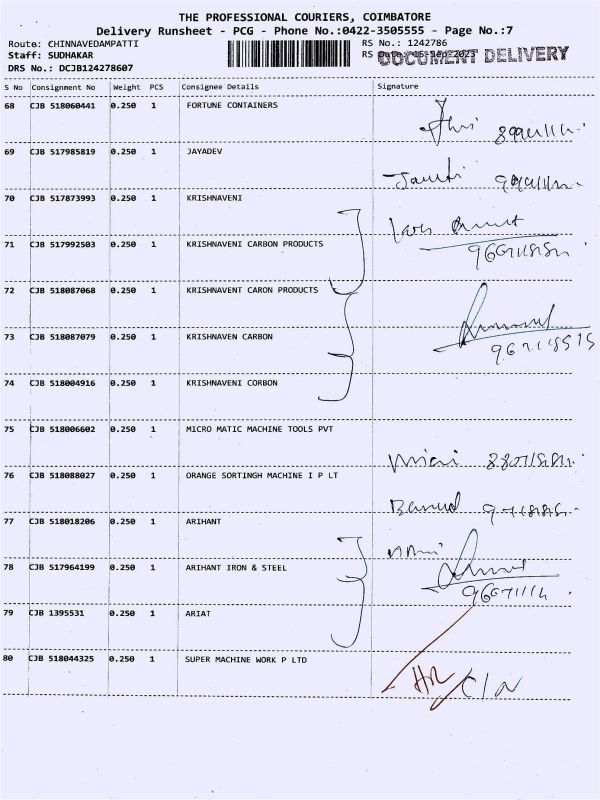 THE PROFESSIONAL COURIERS, COIMBATORE
Delivery Runsheet - PCG - Phone No.:0422-3505555 - Page No.:7
Route: CHINNAVEDAMPATTI RS No.: 1242786
Staff: SUDHAKAR RS Date: DOCUMENT DELIVERY
DRS No.: DCJB124278607
S No Consignment No Weight PCS Consignee Details Signature
68 CJB 518060441 0.250 1 FORTUNE CONTAINERS
69 CJB 517985819 0.250 1 JAYADEV
70 CJB 517873993 0.250 1 KRISHNAVENI
71 CJB 517992503 0.250 1 KRISHNAVENI CARBON PRODUCTS
72 CJB 518087068 0.250 1 KRISHNAVENT CARON PRODUCTS
73 CJB 518087079 0.250 1 KRISHNAVEN CARBON
74 CJB 518004916 0.250 1 KRISHNAVENI CORBON
75 CJB 518006602 0.250 1 MICRO MATIC MACHINE TOOLS PVT
76 CJB 518088027 0.250 1 ORANGE SORTINGH MACHINE I P LT
77 CJB 518018206 0.250 1 ARIHANT
78 CJB 517964199 0.250 1 ARIHANT IRON & STEEL
79 CJB 1395531 0.250 1 ARIAT
80 CJB 518044325 0.250 1 SUPER MACHINE WORK P LTD